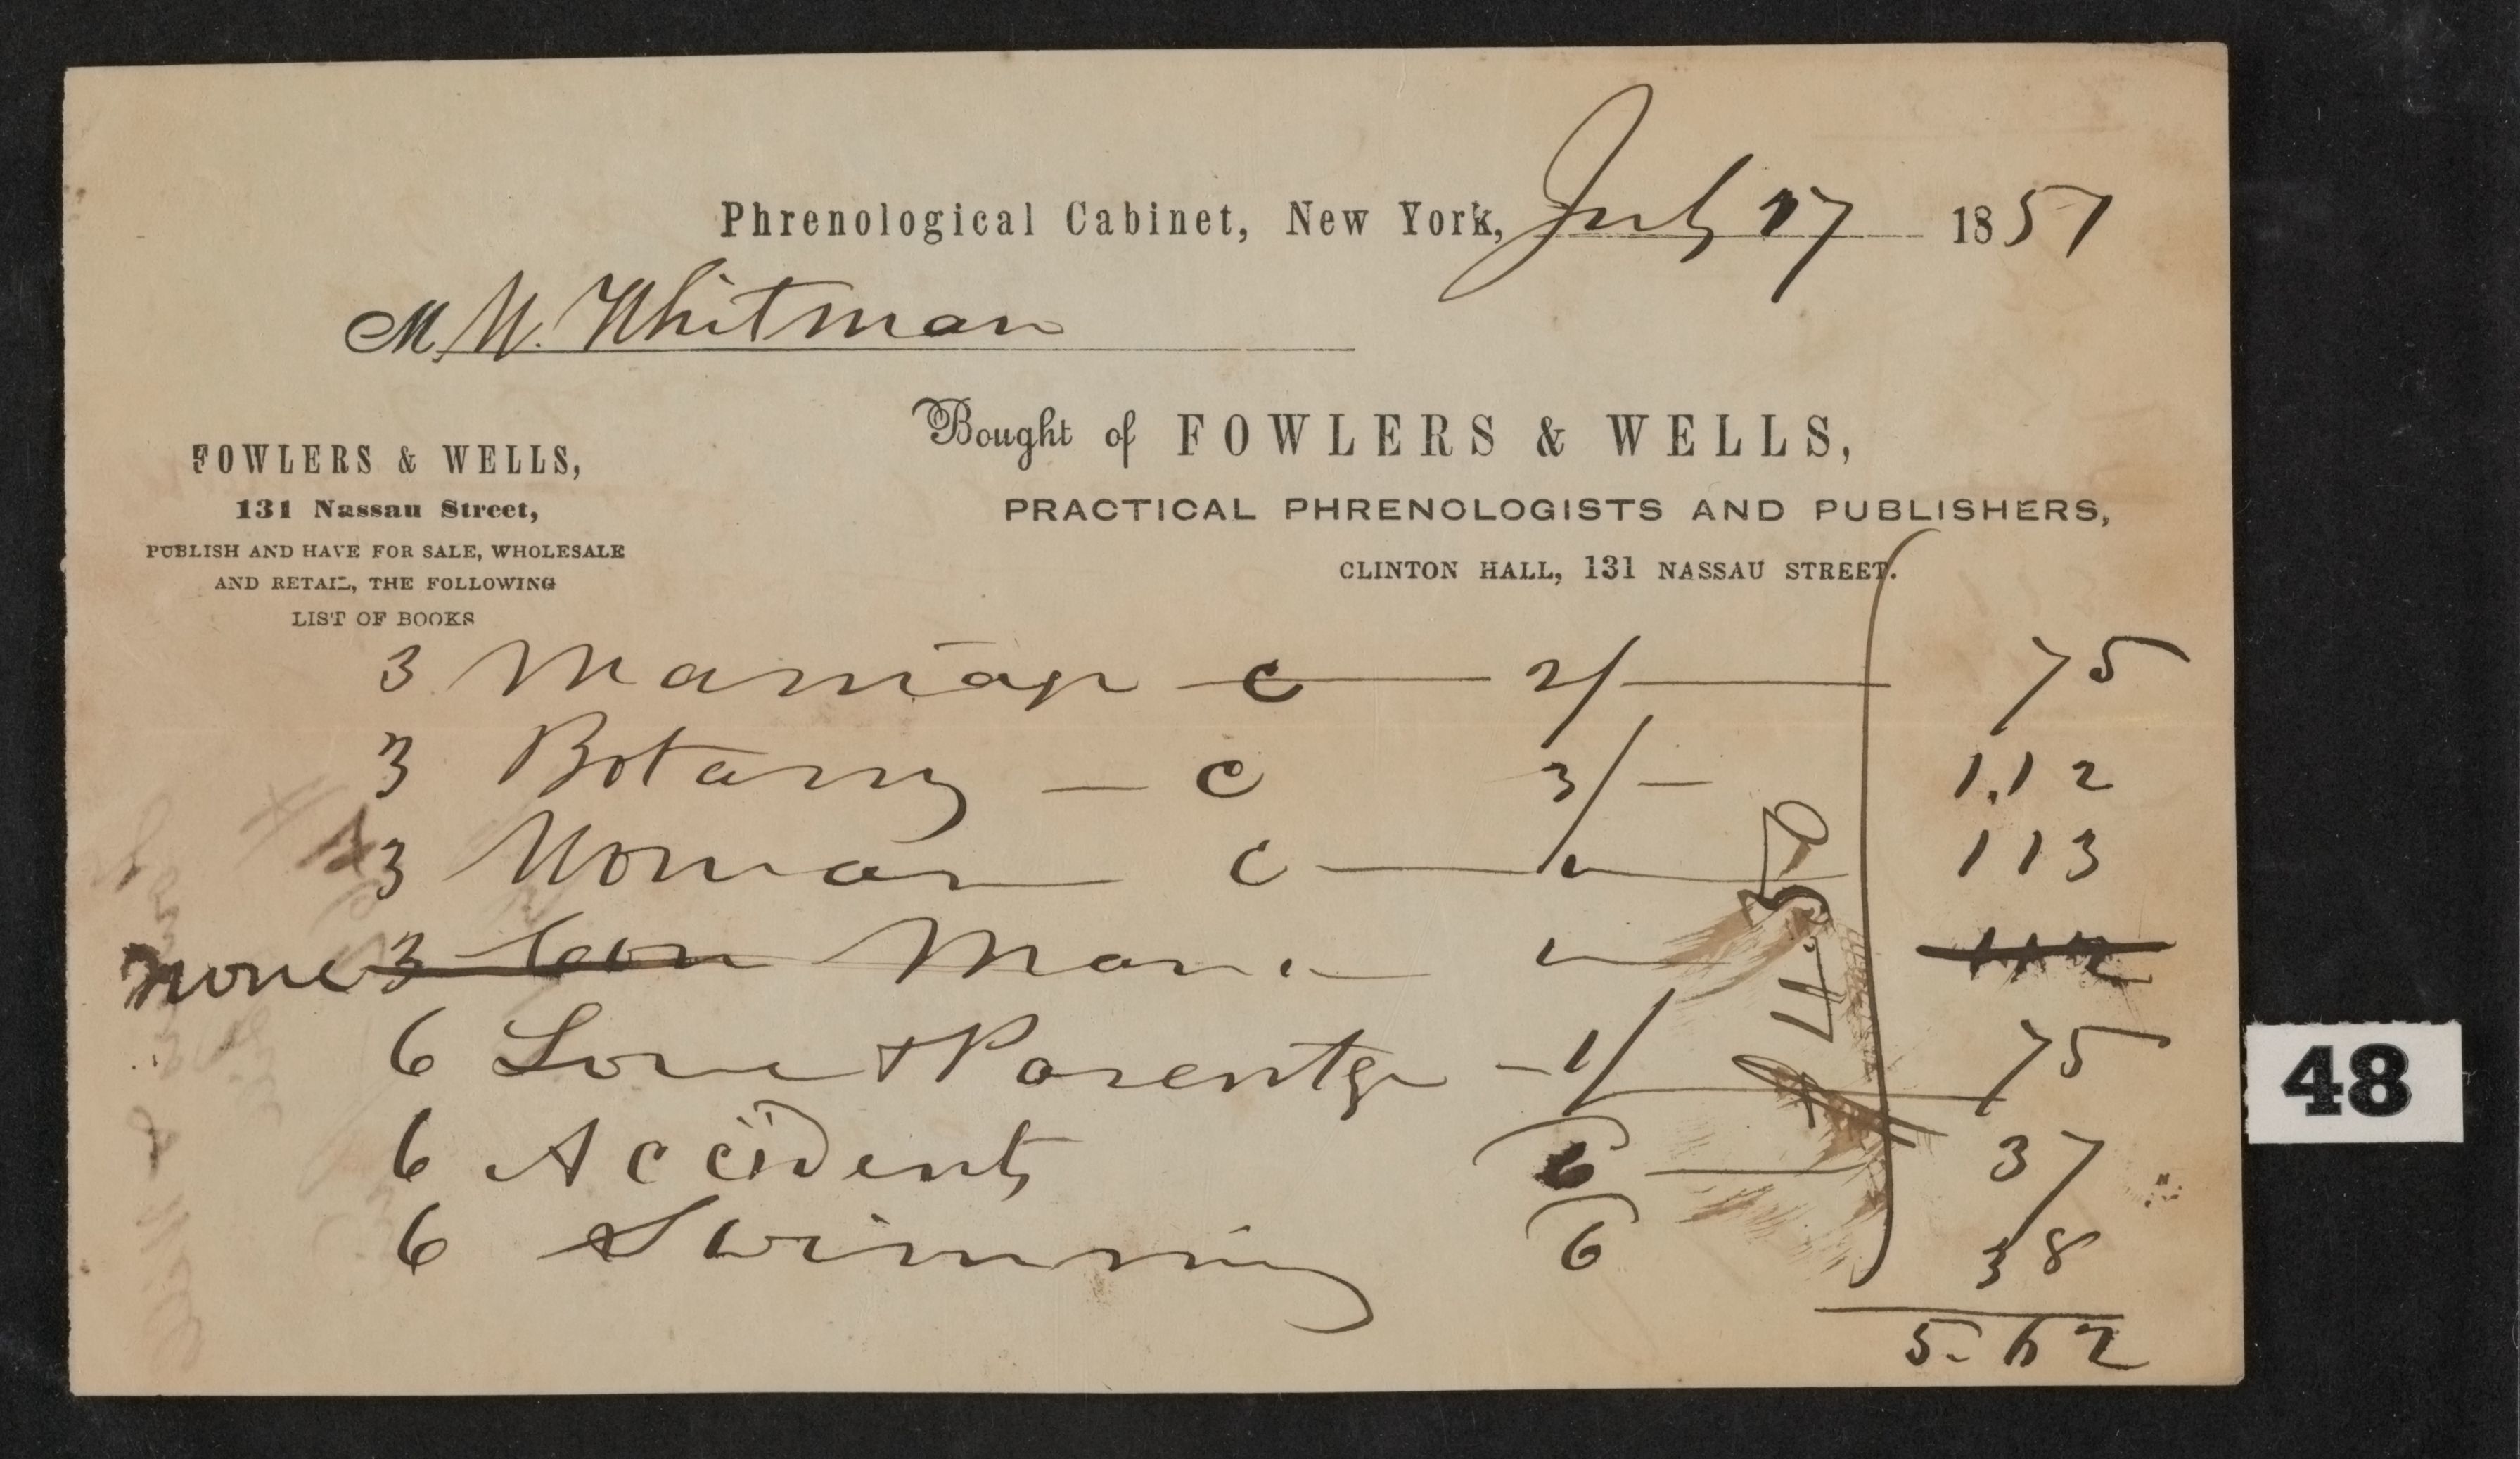 Phrenological Cabinet, New York, July 17 1851
M W. Whitman
Bought of FOWLERS & WELLS,
PRACTICAL PHRENOLOGISTS AND PUBLISHERS,
CLINTON HALL, 131 NASSAU STREET.
FOWLERS & WELLS,
131 Nassau Street,
PUBLISH AND HAVE FOR SALE, WHOLESALE
AND RETAIL, THE FOLLOWING
LIST OF BOOKS
3 Marriage — c — 2/ — 75
3 Botany — c 3/ — 1.12
3 Woman c — " 113
none 3 Con Man " — " 112
6 Love & Parentge - 1/ 75
6 Accidents 6 — 37
6 Swimming 6 38
5.62
48